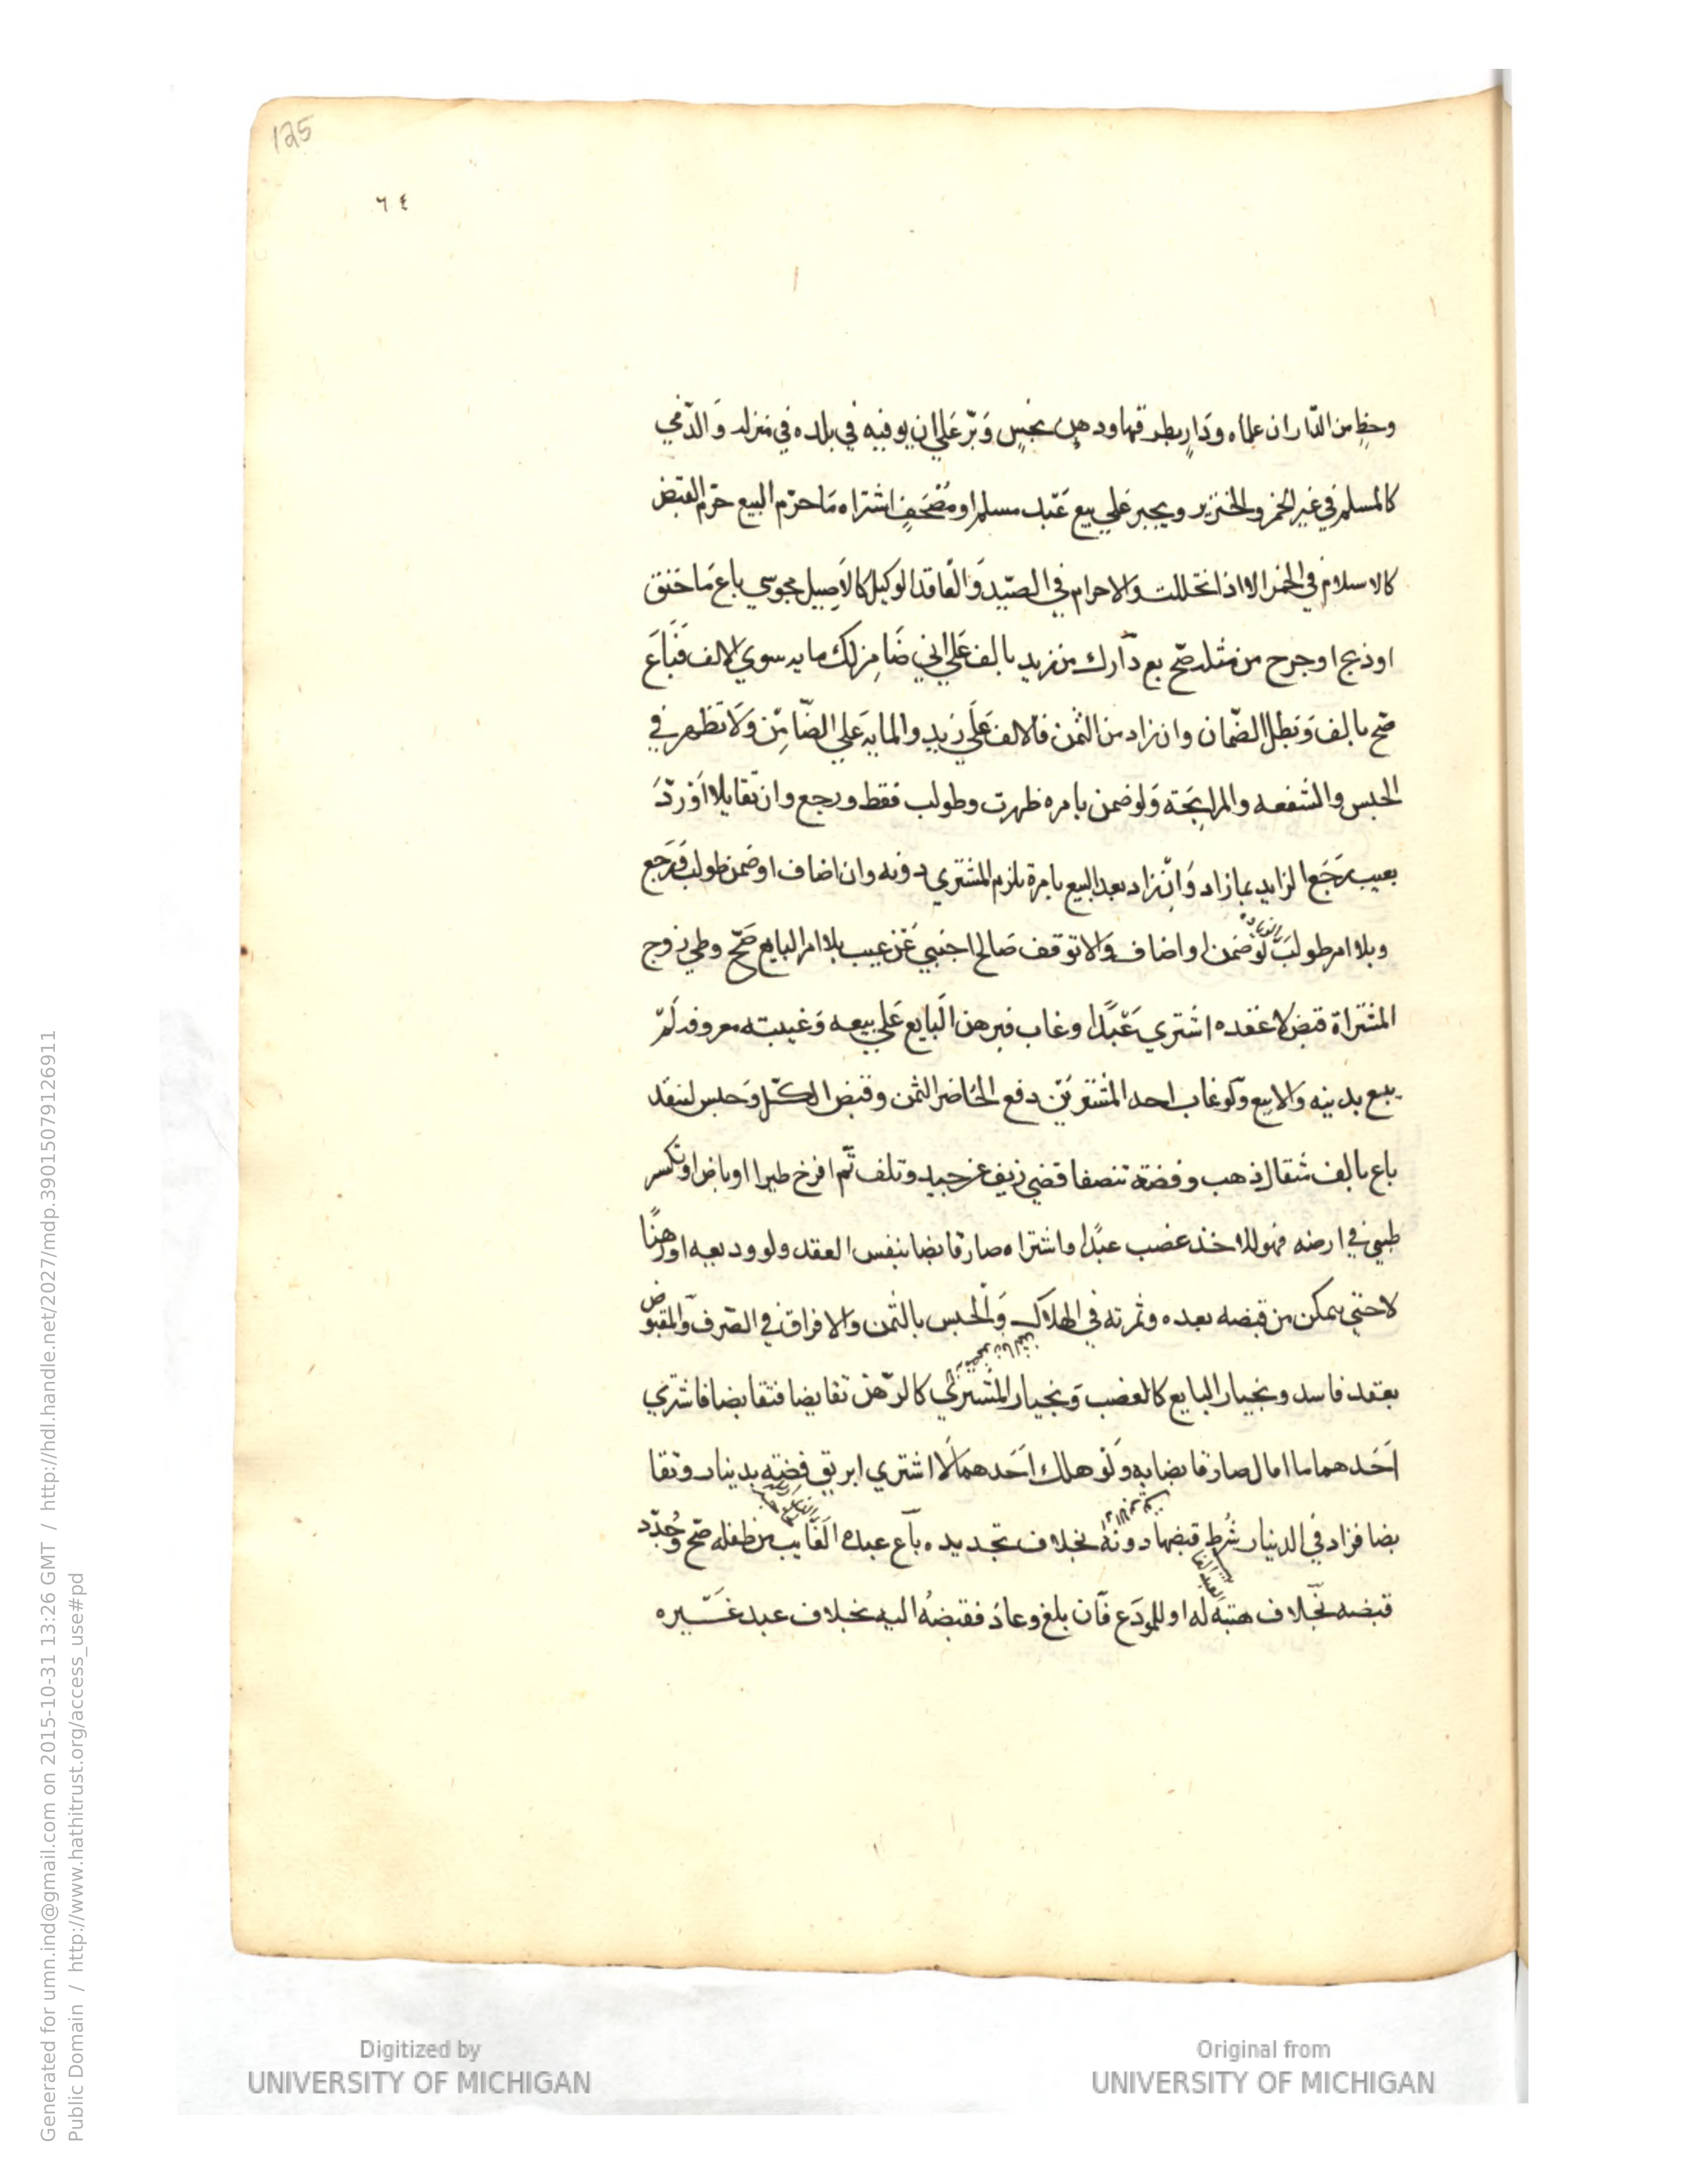 125
٦٤
وحظ من الدّار ان علماه ودَارٍ بطرقها ودهن نجسٍ وَبُرّ عَلي ان يوفيه في بلده في منزله وَالذّمي
كالمسلم في غير الخمر والخنزير ويجبر عَلي بيع عَبْد مسلم او مُصْحَفٍ اشتراه مَا حرّم البيع حرّم القبض
كالاسلام في الخمر الا اذا تخللت والاحرام في الصّيد وَالعَاقد الوكيل كالاَصِيل مجوسي باع مَا خنق
او ذبح او جرح من مثله صَحّ بع دَارك من زيد بالف عَلي اني ضَامِن لك مايه سوي الالف فَبَاعَ
صَحّ بالف وَبَطل الضّمان وان زاد من الثمن فالالف عَلَي زيدٍ والمايه عَلي الضّامِن وَلَا تظهر في
الحبس والشفعه والمرابحَة وَلو ضمن بامره ظهرت وطولب فقط ورجع وان تقايلا اوْ ردّ
بعيب رَجَعَ الزايد بما زاد وَانْ زاد بعد البيع بامره يلزم المشتري دونه وان اضاف او ضمن طولب فَرجع
وبلا امر طولبَ لَو ضمن او اضاف والا توقف صَالح اجنبي عَن عيب بلا امر البايع صَحّ وطي زوج
المشتراة قبض لا عقده اشتري عَبْدًا وغاب فبرهن البَايع عَلي بيعه وَغيبته معروفه لَمْ
يبع بدينه وَالا بيع وَلو غاب احد المشتريَيْن دفع الحَاضر الثمن وقبض الكل وَحبس لنقده
باع بالف مثقال ذهب وفضة تنصفا قضي زيف عن جيد وتلف ثم افرخ طير او باض او تكسر
ظبي في ارضه فهو للاخذ غصب عبدًا واشتراه صار قابضا بنفس العقد ولو وديعه او رهنًا
لا حتي يمكن من قبضه بعده وثمرته في الهلاك وَالحبس بالثمن والافراق في الصّرف وَالمقبوض
بعقد فاسد وبخيار البايع كالغصب وَبخيار المشتري كالرّهن تقايضا فتقابضا فاشتري
اَحَدهما ما اقال صار قابضا به وَلَو هلك اَحَدهما لَا اشتري ابريق فِضّه بدينار وتقا
بضا فزاد في الدينار شُرِط قبضها دونه بخلاف تجديده بَاع عبده الغَايب من طفله صَحّ وَجُدّد
قبضه بخلاف هبَته له او للمودَع فان بلغ وعاد فقبضُه اليه بخلاف عبد غَيره
Generated for umn.ind@gmail.com on 2015-10-31 13:26 GMT / http://hdl.handle.net/2027/mdp.39015079126911
Public Domain / http://www.hathitrust.org/access_use#pd
Digitized by
UNIVERSITY OF MICHIGAN
Original from
UNIVERSITY OF MICHIGAN